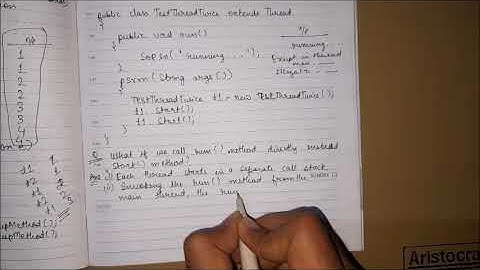 o/p
1
1
2
2
3
3
4
4
t1
public class TestThreadTwice extends Thread
{
public void run()
{
SopLn("running...");
}
psvm(String args[])
{
TestThreadTwice t1 = new TestThreadTwice();
t1.start();
t1.start();
}
}
o/p
running
Except in thread
main
Illegal
Q What if we call run() method directly instead
start() method?
Ans i) Each thread starts in a separate call stack
ii) Invoking the run() method from the
main thread, the run
Method();
Method();
Aristocra